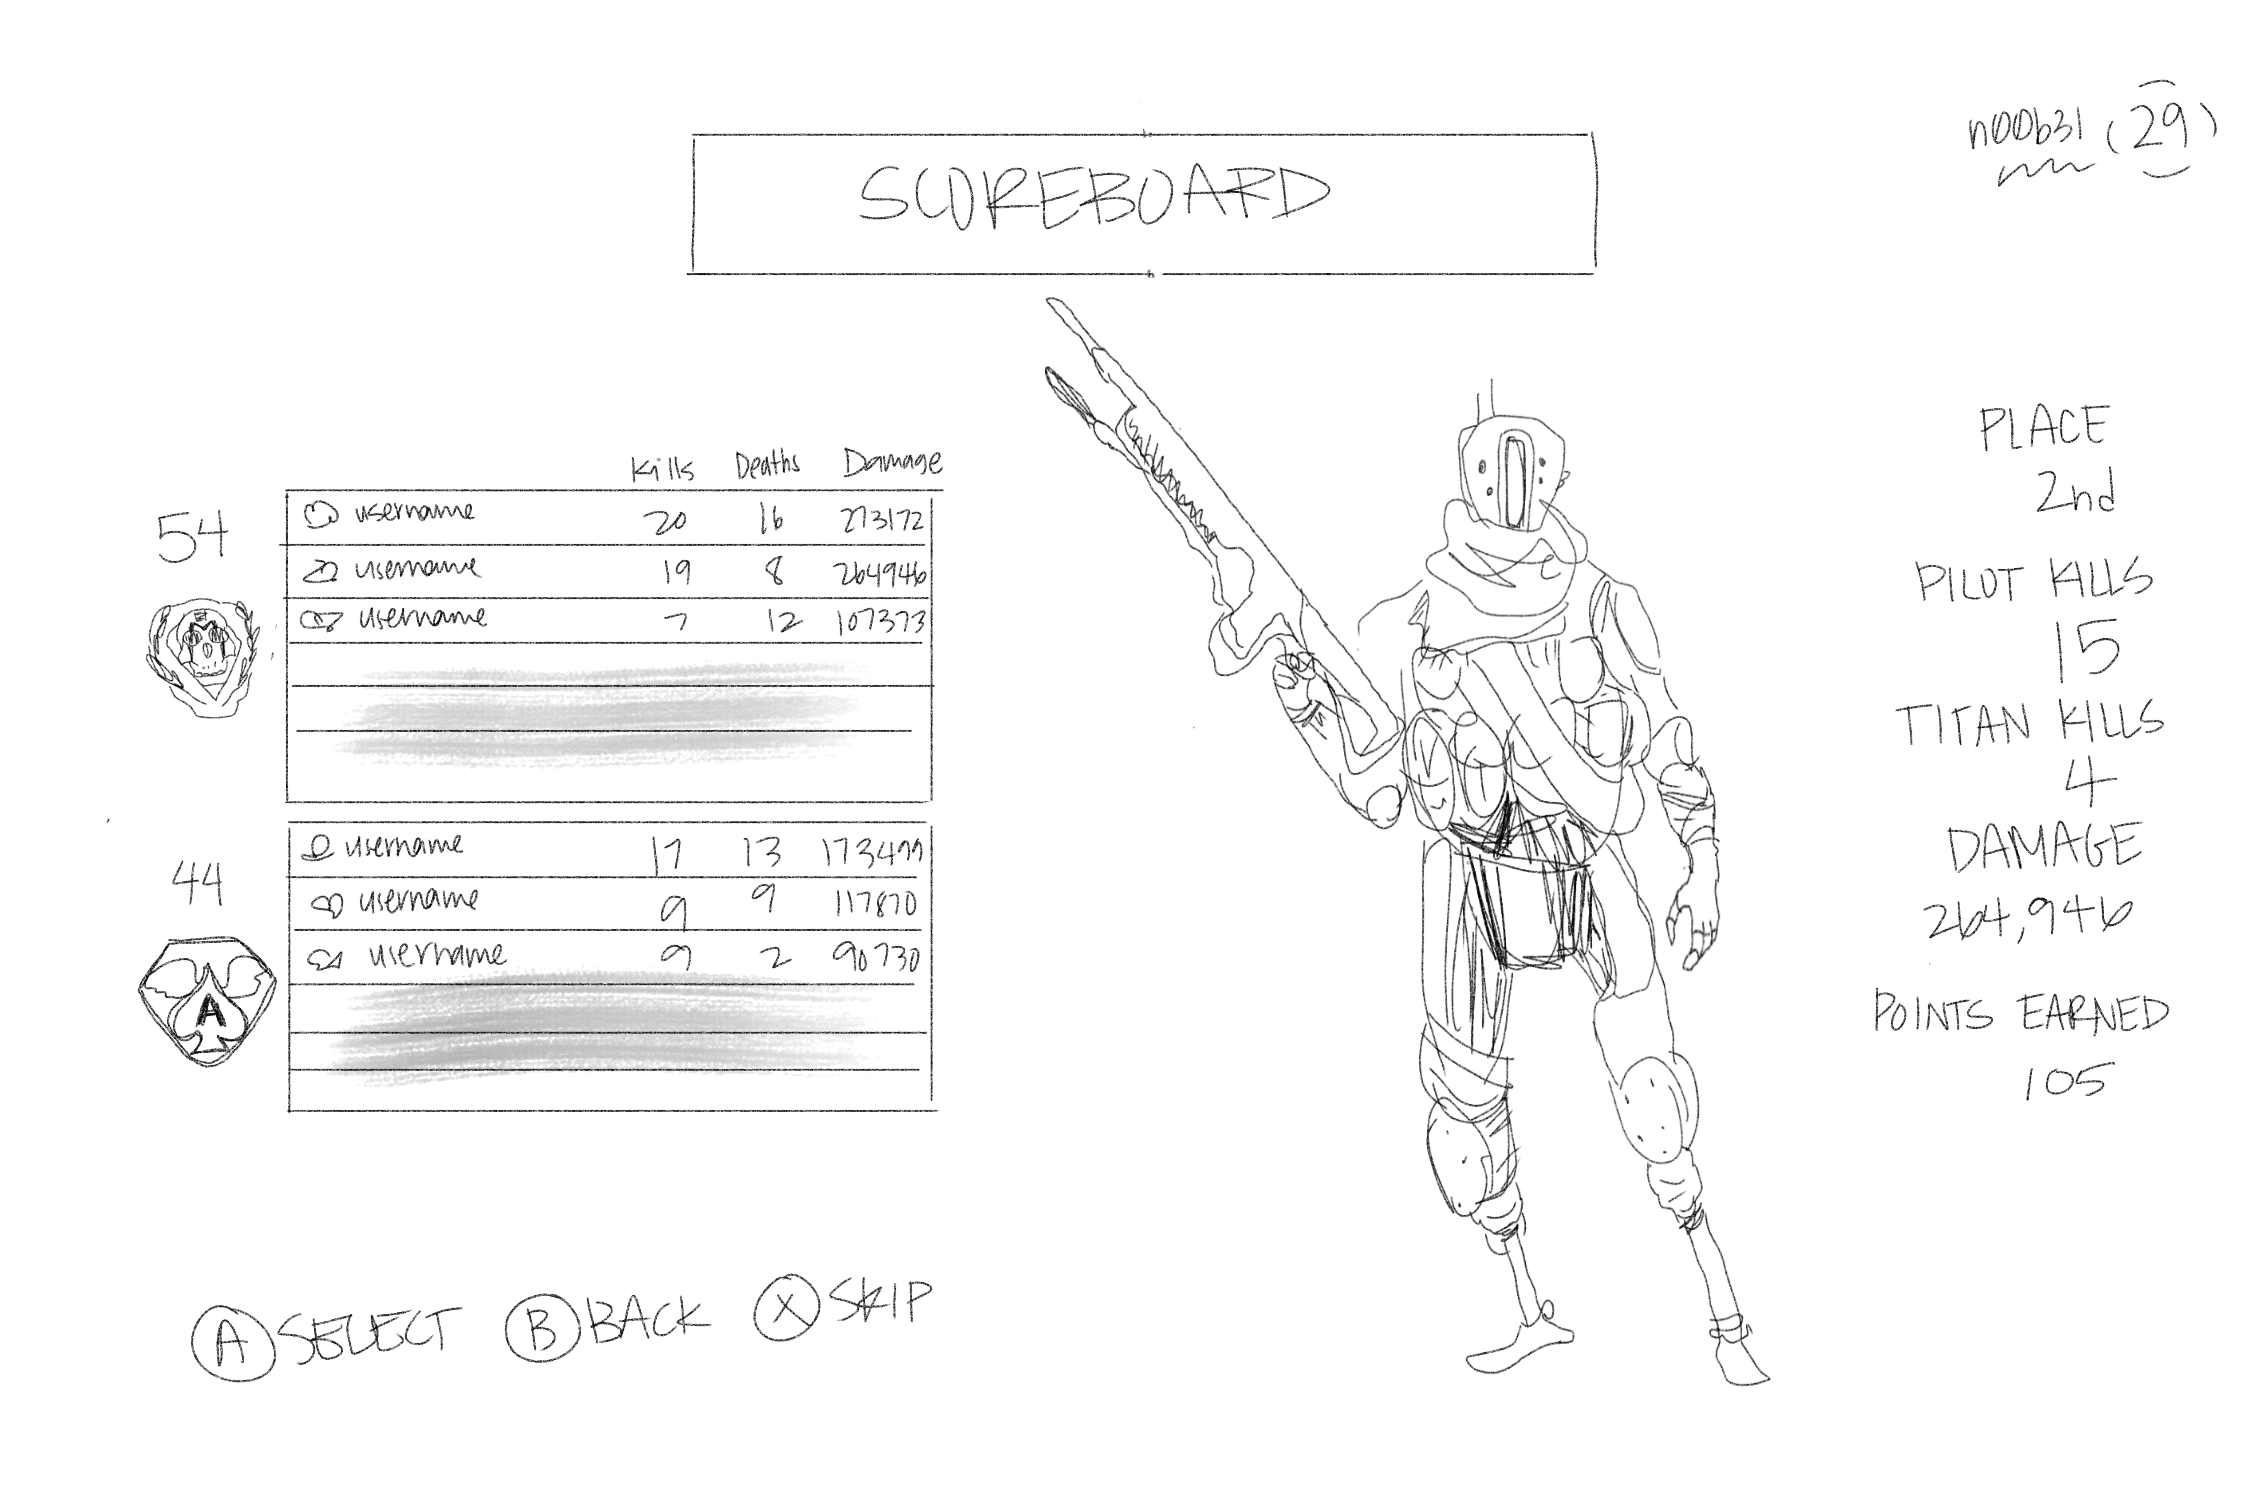 n00b31 (29)
SCOREBOARD
Kills Deaths Damage
54
username 20 16 273172
username 19 8 264946
username 7 12 107373
44
username 17 13 173499
username 9 9 117870
username 9 2 90730
A
PLACE
2nd
PILOT KILLS
15
TITAN KILLS
4
DAMAGE
264,946
POINTS EARNED
105
A SELECT B BACK X SKIP